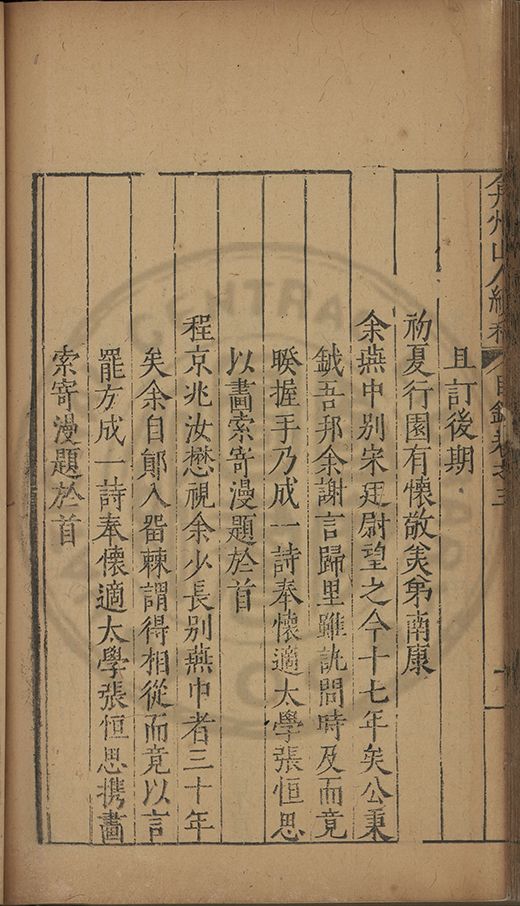 弇州山人續稿 目錄卷之三
且訂後期
初夏行園有懷敬美弟南康
余燕中別宋廷尉望之今十七年矣公秉
鉞吾邦余謝言歸里雖訊問時及而竟
暌握手乃成一詩奉懷適太學張恒思
以畫索寄漫題於首
程京兆汝懋視余少長別燕中者三十年
矣余自鄖入畱棘謂得相從而竟以言
罷方成一詩奉懷適太學張恒思携畫
索寄漫題於首